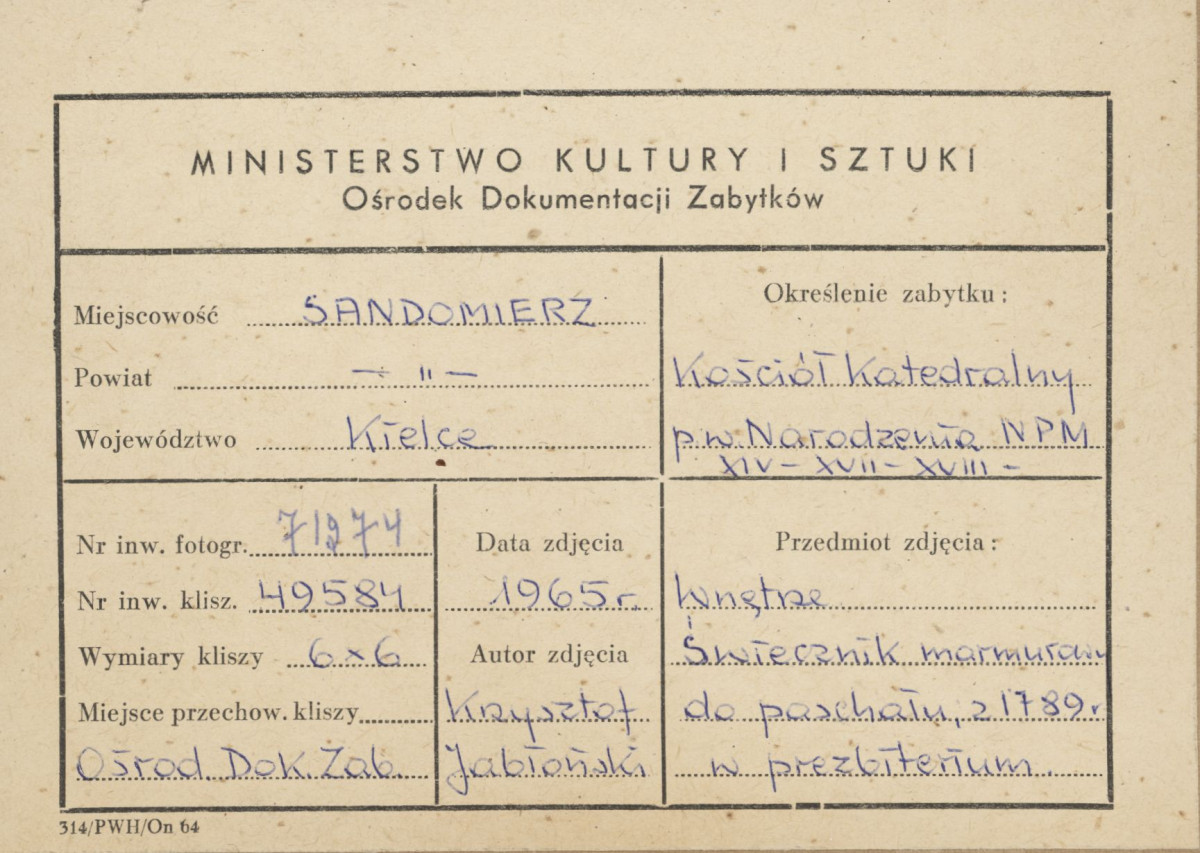 MINISTERSTWO KULTURY I SZTUKI
Ośrodek Dokumentacji Zabytków
Miejscowość SANDOMIERZ
Powiat — " —
Województwo Kielce
Określenie zabytku:
Kościół Katedralny
p.w. Narodzenia NPM
XIV - XVII - XVIII -
Nr inw. fotogr. 71974
Nr inw. klisz. 49584
Wymiary kliszy 6 x 6
Miejsce przechow. kliszy
Ośrod. Dok. Zab.
Data zdjęcia
1965 r.
Autor zdjęcia
Krzysztof
Jabłoński
Przedmiot zdjęcia:
Wnętrze
Świecznik marmurowy
do paschału, z 1789 r
w prezbiterium.
314/PWH/On 64